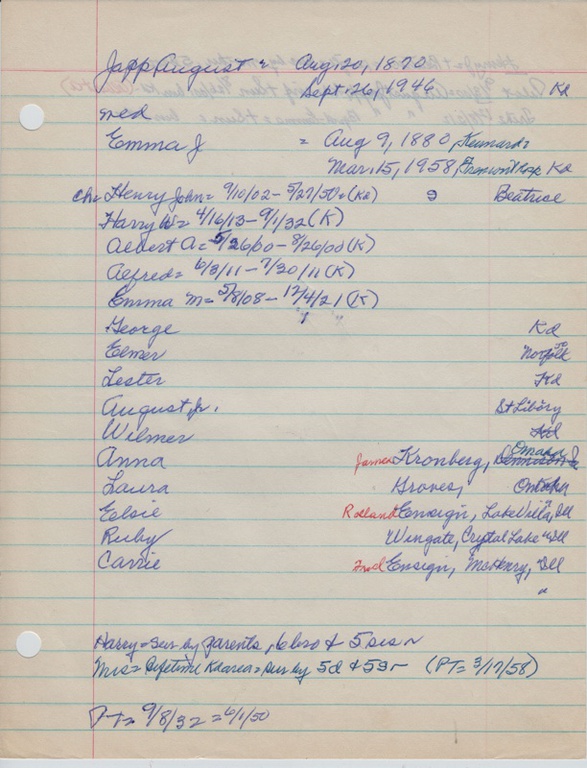 Japp, August = Aug. 20, 1870
Sept. 26, 1946 Kd
med
Emma J = Aug 9, 1880, Kennard =
Mar. 15, 1958, Fremont Hosp Kd
ch = Henry John = 9/10/02 - 5/27/50 = (Kd) 9 Beatrice
Harry W = 4/16/13 - 9/1/32 (K)
Albert A = 5/26/00 - 8/26/00 (K)
Alfred = 6/3/11 - 7/30/11 (K)
Emma M = 5/8/08 - 12/4/21 (K)
" "
George Kd
Elmer Norfolk
Lester Kd
August, Jr. St Libory
Wilmer Kd
Anna James Kronberg, Dennison Ia Omaha
Laura Groves, Omaha
Elsie Rolland Ensign, Lake Villa, Ill
Ruby Wingate, Crystal Lake " Ill
Carrie Fred Ensign, McHenry, Ill
"
Harry = sur. by parents, 6 bro & 5 sis ~
Mrs = lifetime Kd area = sur by 5d & 5s ~ (PT = 3/17/58)
PT = 9/8/32 = 6/1/50